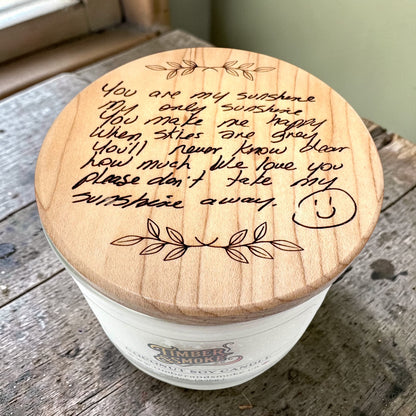 You are my sunshine
My only sunshine
You make me happy
When skies are grey
You'll never know dear
how much We love you
please don't take my
sunshine away.
TIMBER
SMOKE
COCONUT SOY CANDLE